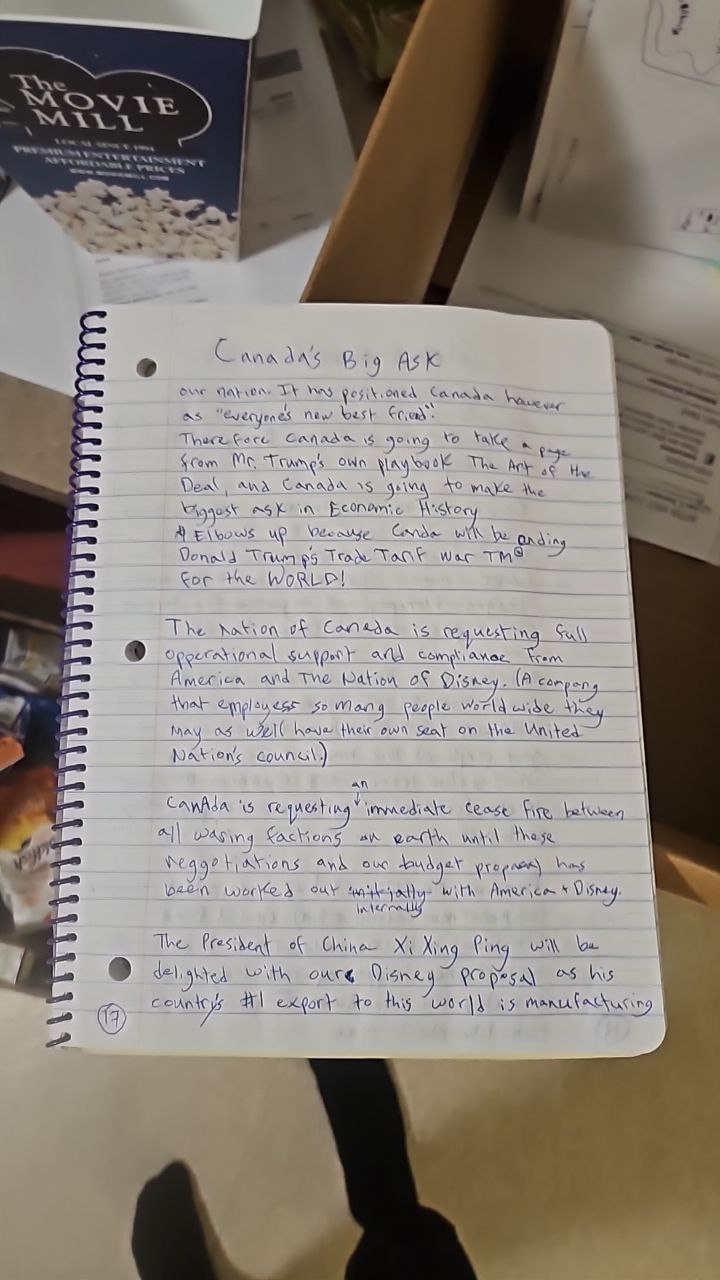 The
MOVIE
MILL
LOCAL SINCE 1994
PREMIUM ENTERTAINMENT
AFFORDABLE PRICES
Canada's Big Ask
our nation. It has positioned Canada however
as "everyone's new best friend".
Therefore Canada is going to take a page
from Mr. Trump's own playbook The Art of the
Deal, and Canada is going to make the
biggest ask in Economic History
Elbows up because Canda will be ending
Donald Trump's Trade Tarif war TM
for the WORLD!
The Nation of Canada is requesting full
opperational support and compliance from
America and The Nation of Disney. (A company
that employess so many people worldwide they
may as well have their own seat on the United
Nation's council.)
CanAda is requesting an immediate cease fire between
all waring factions on earth until these
neggotiations and our budget proposal has
been worked out initially internally with America + Disney.
The President of China Xi Xing Ping will be
delighted with our Disney proposal as his
country's #1 export to this world is manufacturing
17